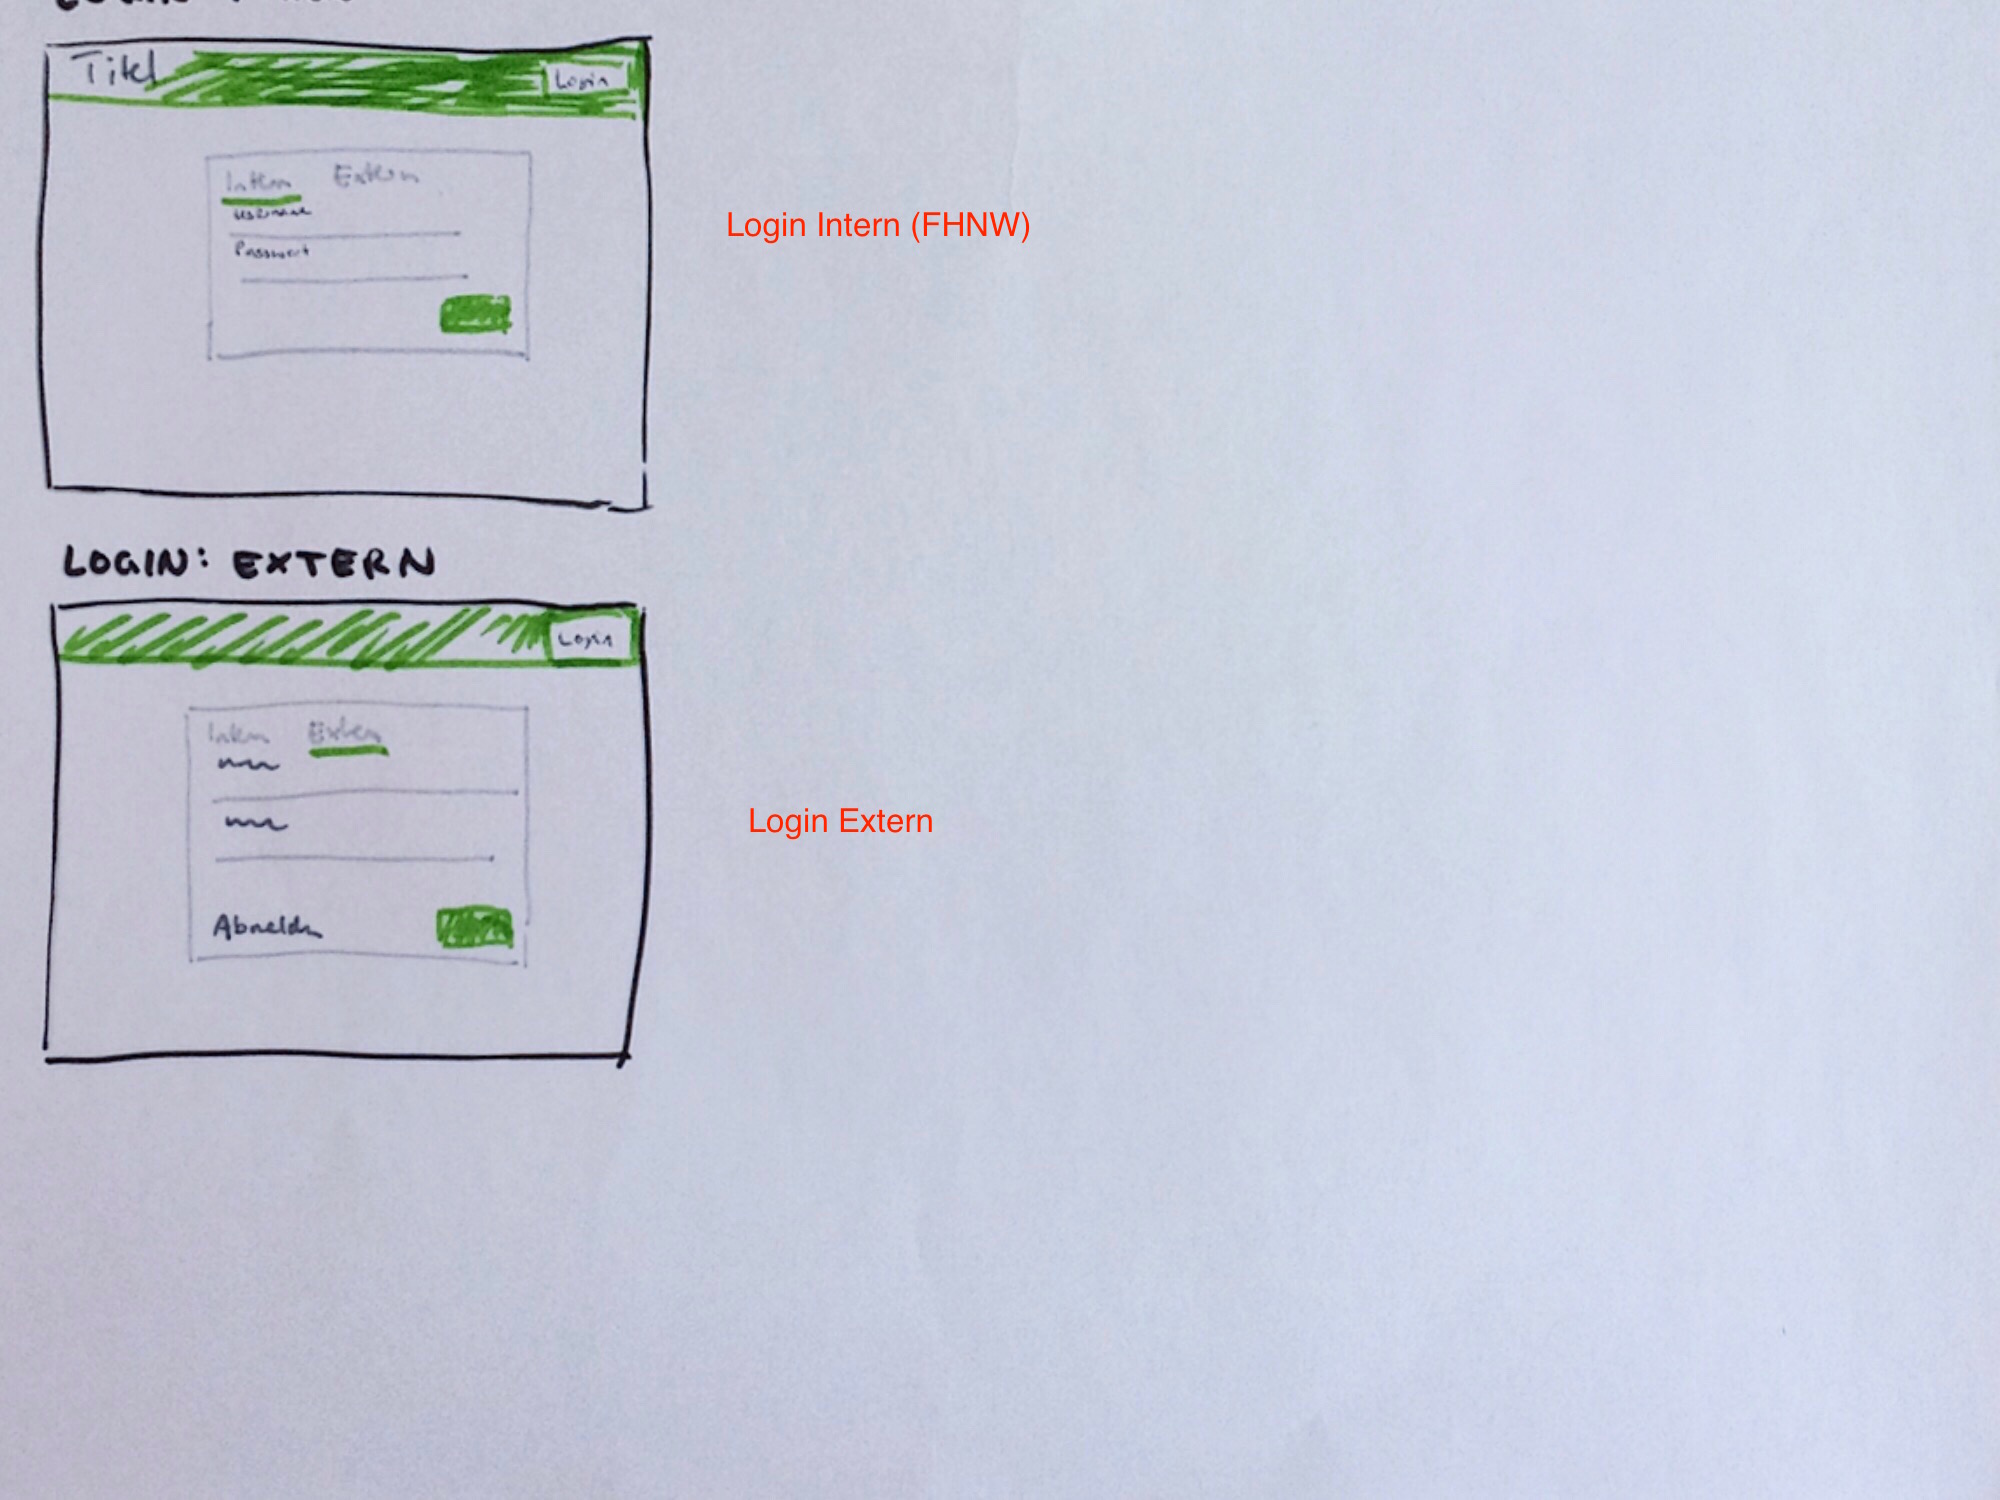 Titel
Login
Intern Extern
Username
Passwort
Login Intern (FHNW)
LOGIN: EXTERN
Login
Intern Extern
Abmelden
Login Extern